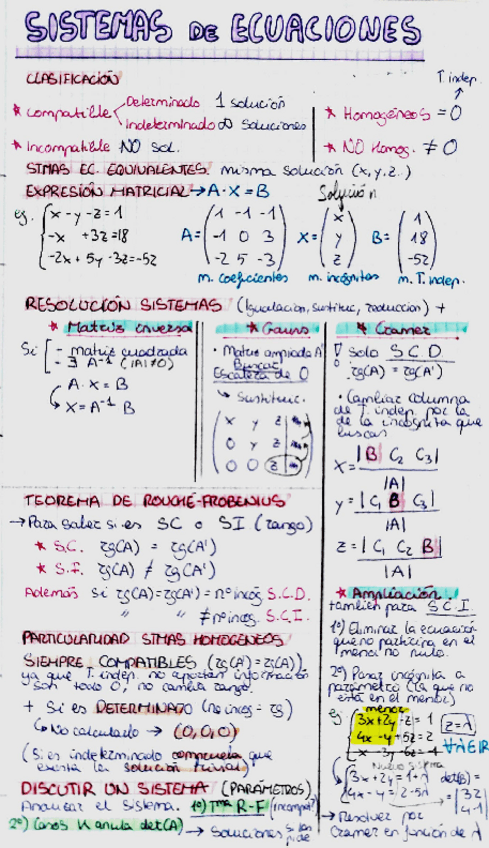 SISTEMAS DE ECUACIONES
CLASIFICACIÓN
* Compatible Determinado 1 solución
Indeterminado ∞ soluciones
* Incompatible NO sol.
T. indep.
* Homogéneos = 0
* NO Homog. ≠ 0
STMAS EC. EQUIVALENTES. misma solución (x,y,z..)
EXPRESIÓN MATRICIAL → A·X = B
Solución
eg. { x - y - z = 1
-x +3z = 18
-2x + 5y -3z = -52
A = ( 1 -1 -1
-1 0 3
-2 5 -3 )
m. coeficientes
X = ( x
y
z )
m. incógnitas
B = ( 1
18
-52 )
m. T. indep.
RESOLUCIÓN SISTEMAS (Igualación, sustituc, reducción) +
* Matriz inversa
Si [ - matriz cuadrada
- ∃ A⁻¹ (|A|≠0)
A · X = B
X = A⁻¹ B
* Gauss
· Matriz ampliada A'
Buscar
Escalera de 0
↳ Sustituc.
( x y z | *
0 y z | *
0 0 z | * )
* Cramer
Solo S.C.D
rg(A) = rg(A')
· Cambiar columna
de T. indep por la
de la incógnita que
buscas
X = |B C₂ C₃|
|A|
y = |C₁ B C₃|
|A|
z = |C₁ C₂ B|
|A|
TEOREMA DE ROUCHÉ-FROBENIUS
→ Para saber si es SC o SI (rango)
* S.C. rg(A) = rg(A')
* S.I. rg(A) ≠ rg(A')
Además si rg(A)=rg(A') = nº incóg S.C.D.
" " ≠ nº incog. S.C.I.
PARTICULARIDAD STMAS HOMOGÉNEOS
SIEMPRE COMPATIBLES (rg(A') = rg(A))
ya que T. indep. no aportan información
son todo 0, no cambia rango.
+ Si es DETERMINADO (nº incog = rg)
↳ No calculado → (0,0,0)
(Si es indeterminado comprueba que
exista la solución trivial)
DISCUTIR UN SISTEMA (PARÁMETROS)
Analizar el sistema. 1º) Tma R-F (incompat?)
2º) Casos K anula det(A) → Soluciones si las pide
* Ampliación.
también para S.C.I.
1º) Eliminar la ecuación
que no participa en el
menor no nulo.
2º) Pasar incógnita a
parámetro (la que no
está en el menor)
menor
eg { 3x+2y -z = 1
4x - y +5z = 2
z=λ
∀λ∈ℝ
Nuevo sistema
{ 3x + 2y = 1+λ
4x - y = 2-5λ
det(B) =
|3 2
4 -1|
→ Resolver por
Cramer en función de λ